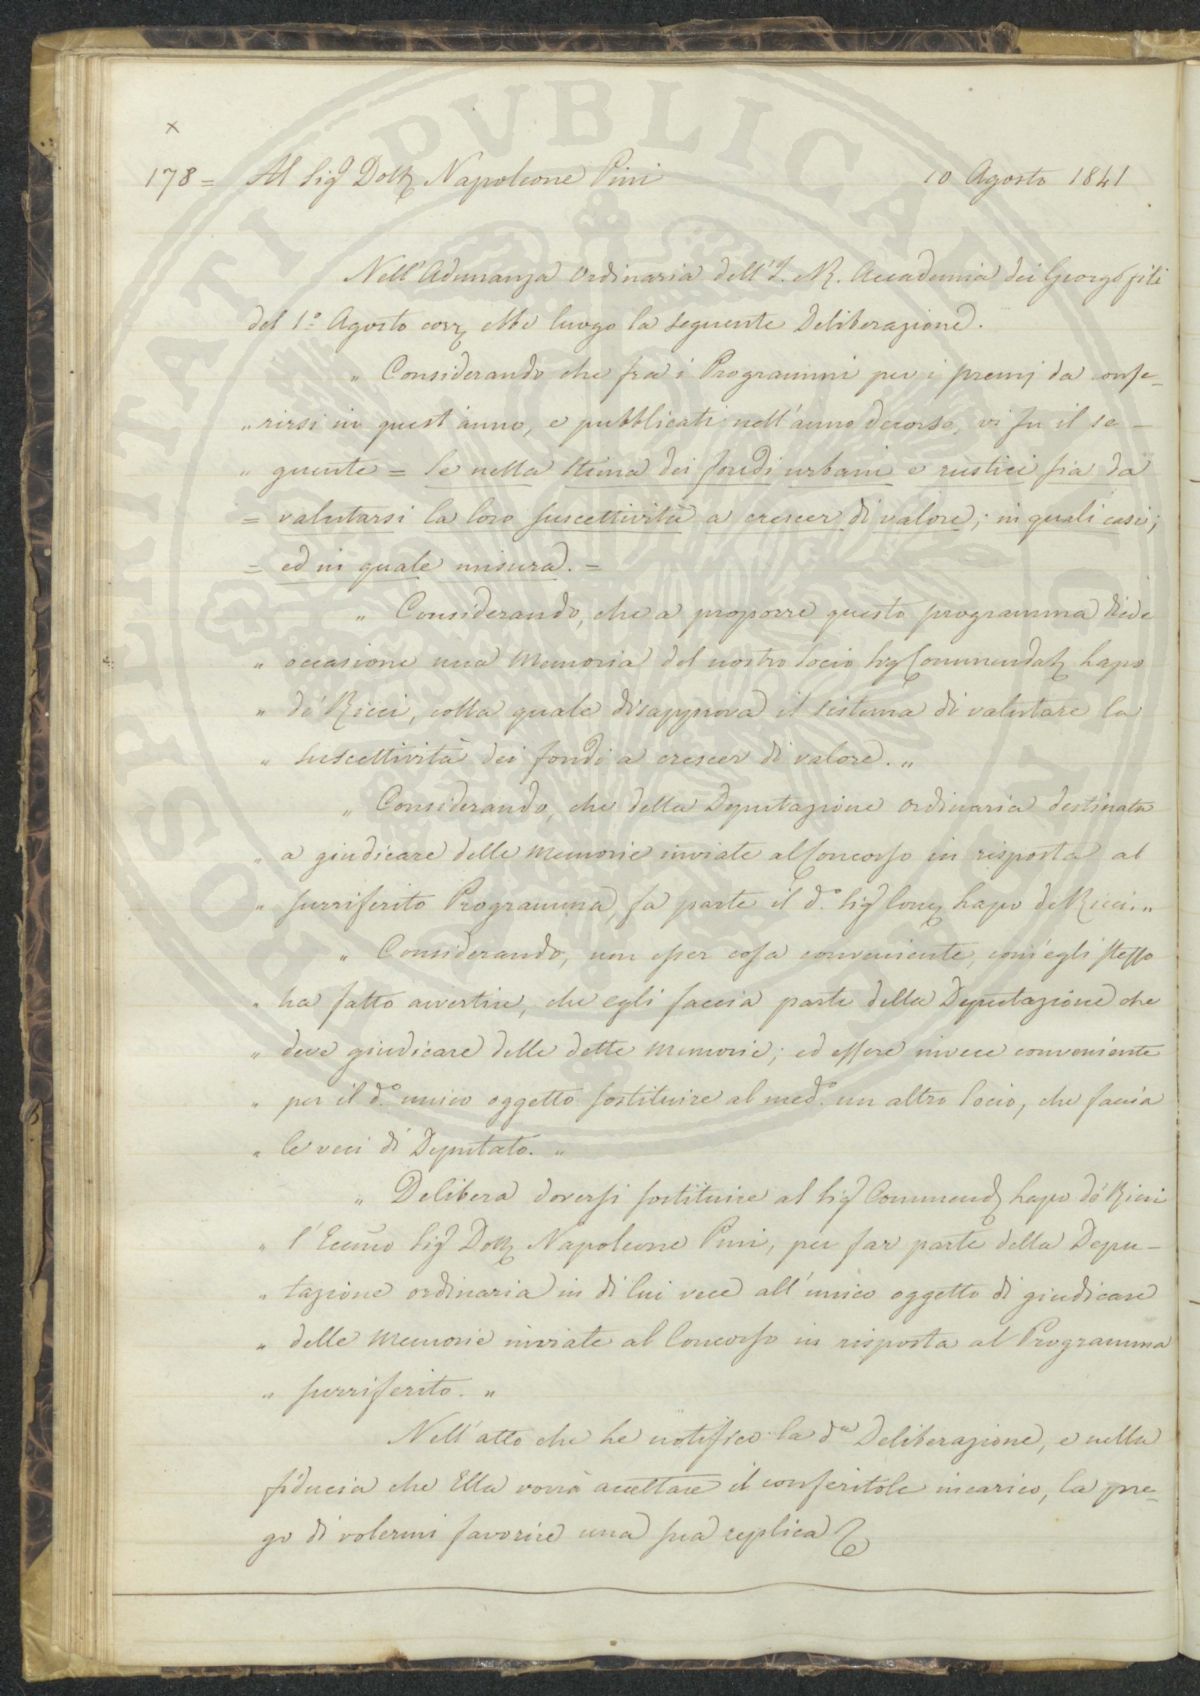 ×
178 = Al Sig.r Dott. Napoleone Pini 10 Agosto 1841
Nell'Adunanza Ordinaria dell'I. e R. Accademia dei Georgofili
del 1.° Agosto corr. ebbe luogo la seguente Deliberazione.
" Considerando che fra i Programmi per i premj da confe-
" rirsi in quest'anno, e pubblicati nell'anno decorso, vi fu il se-
" guente = Se nella stima dei fondi urbani e rustici sia da
= valutarsi la loro suscettività a crescer di valore; in quali casi;
= ed in quale misura. =
" Considerando, che a proporre questo programma diede
" occasione una Memoria del nostro Socio Sig. Commendat. Lapo
" de' Ricci, colla quale disapprova il sistema di valutare la
" suscettività dei fondi a crescer di valore. "
" Considerando, che della Deputazione ordinaria destinata
" a giudicare delle Memorie inviate al Concorso in risposta al
" surriferito Programma, fa parte il d.° Sig. Com. Lapo de Ricci. "
" Considerando, non esser cosa conveniente, com'egli stesso
" ha fatto avvertire, che egli faccia parte della Deputazione che
" deve giudicare delle dette Memorie; ed essere invece conveniente
" per il d.° unico oggetto sostituire al med.° un altro Socio, che faccia
" le veci di Deputato. "
" Delibera doversi sostituire al Sig. Commend. Lapo de' Ricci
" l'Eccmo Sig. Dott. Napoleone Pini, per far parte della Depu-
" tazione ordinaria in di lui vece all'unico oggetto di giudicare
" delle Memorie inviate al Concorso in risposta al Programma
" surriferito. "
Nell'atto che Le notifico la d.a Deliberazione, e nella
fiducia che Ella vorrà accettare il conferitole incarico, la pre-
go di volermi favorire una sua replica
HOSPITALITATI PUBLICAE